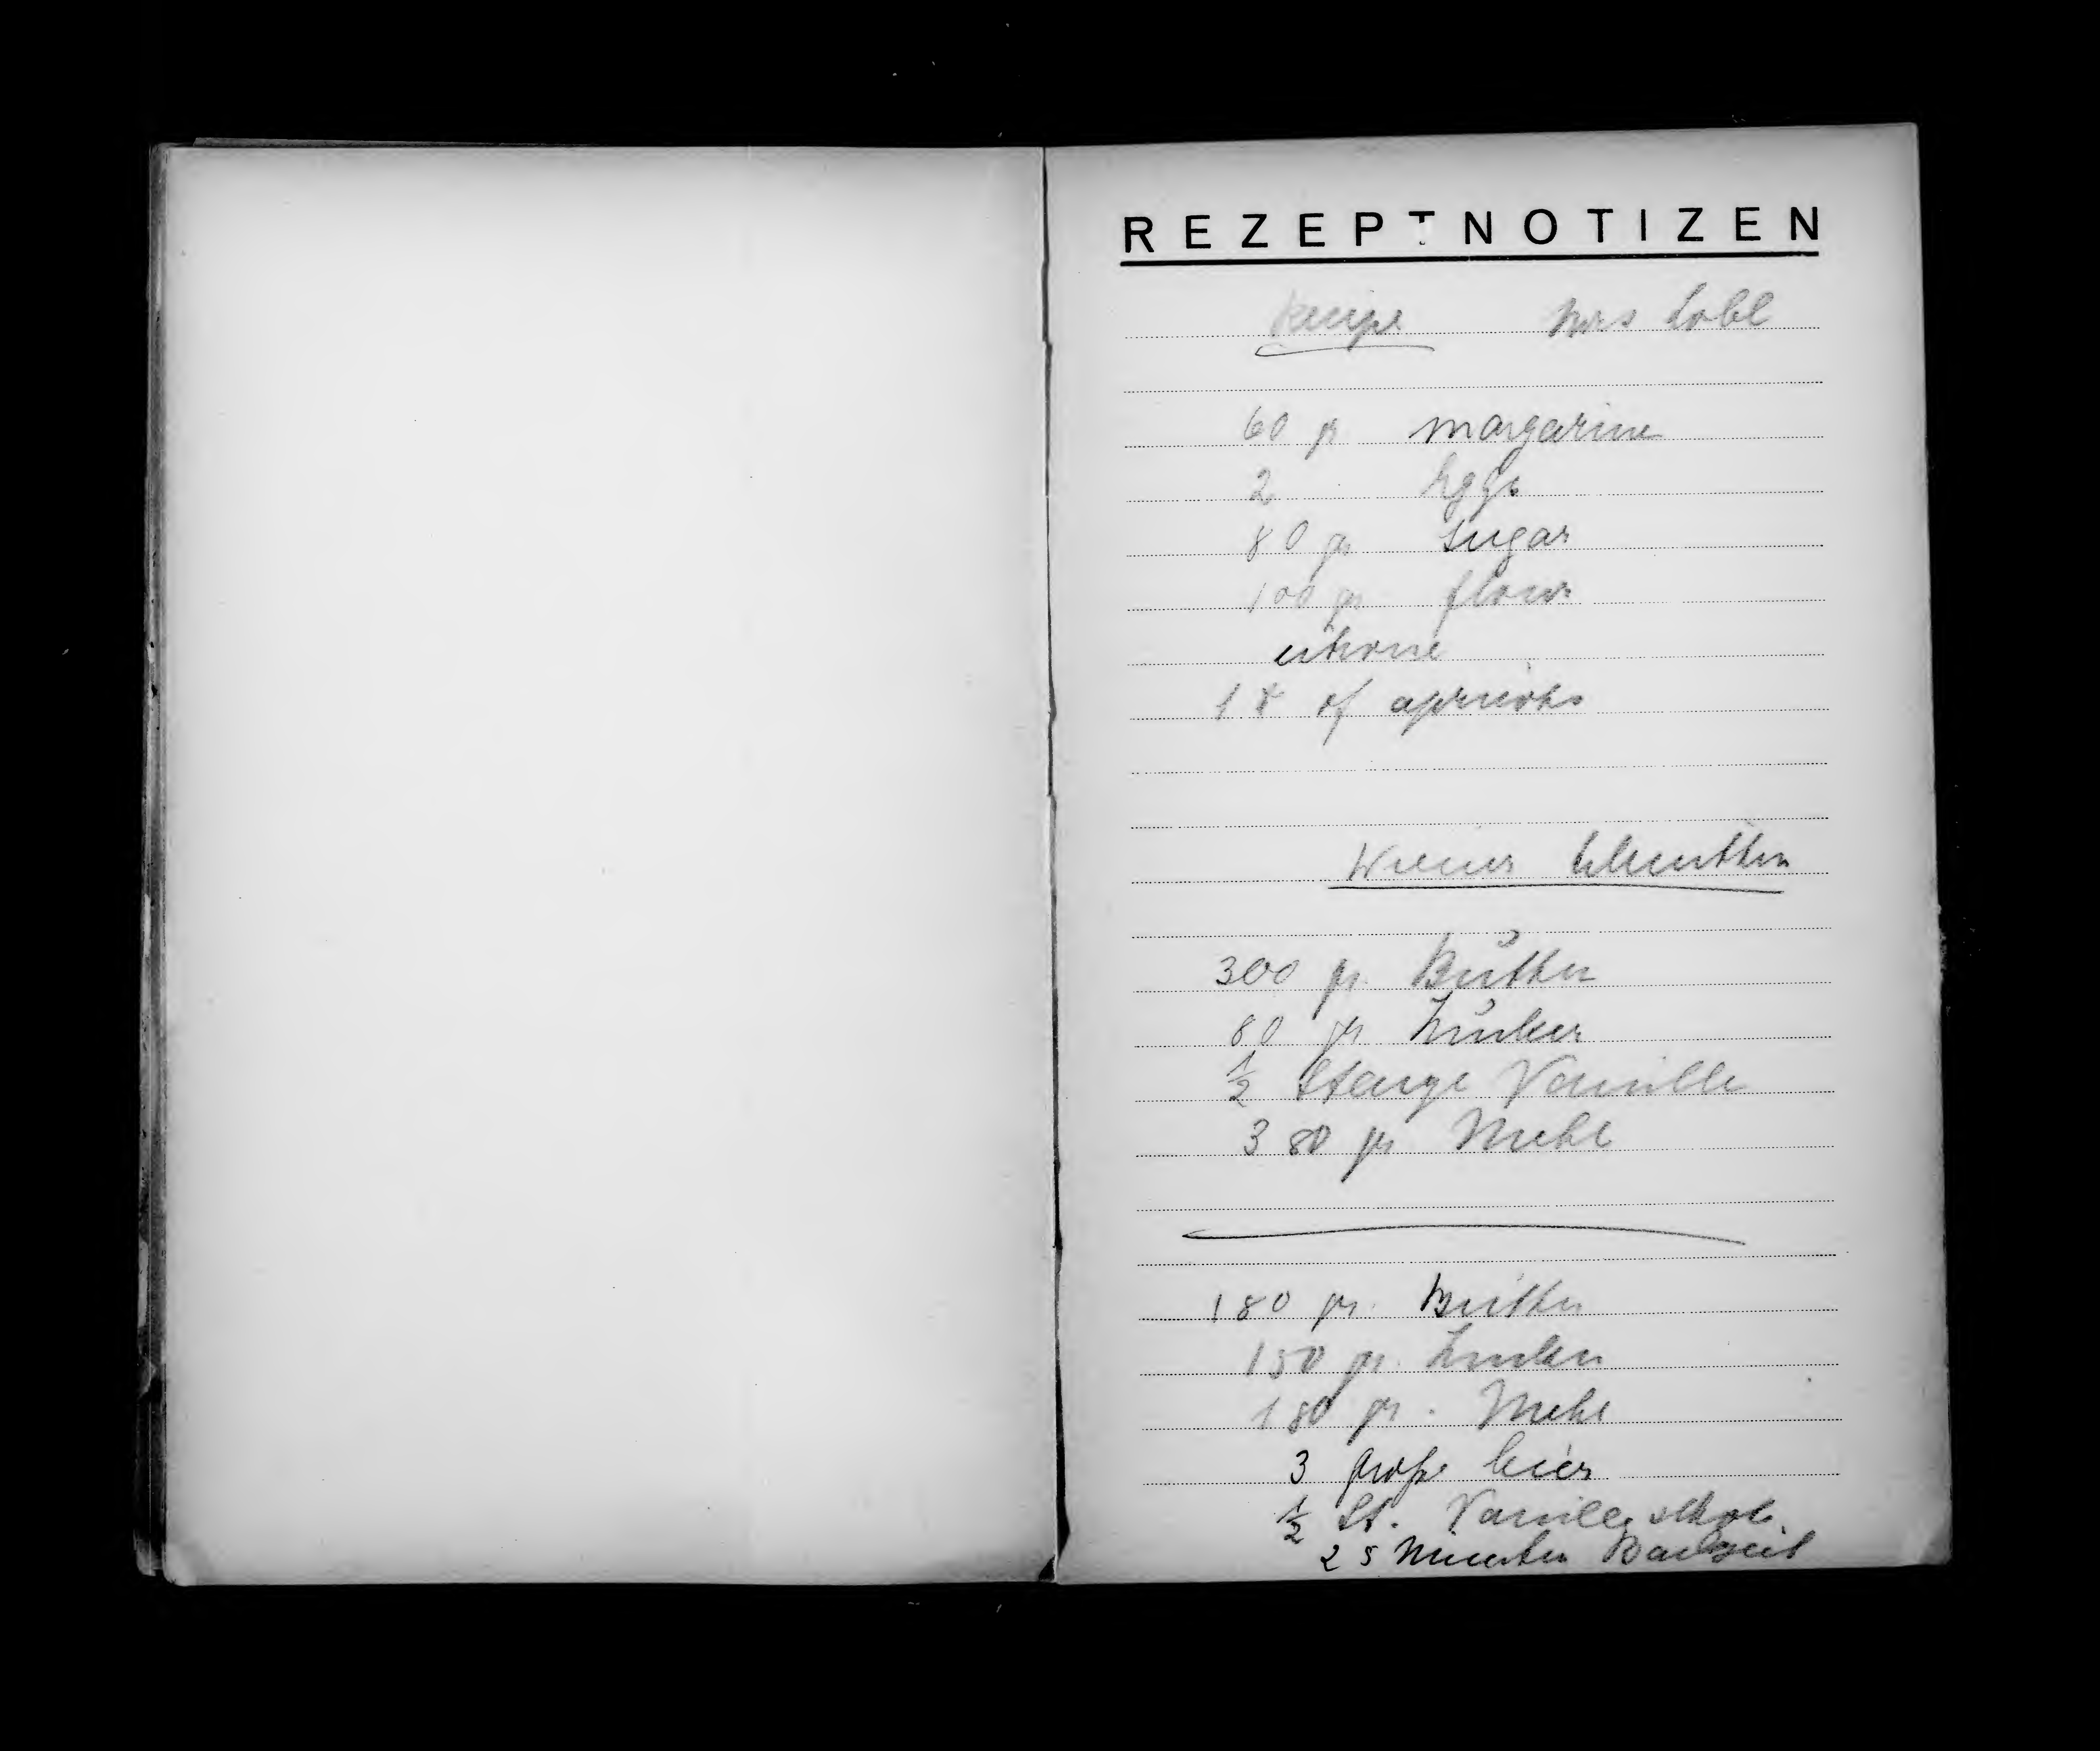 REZEPTNOTIZEN
Recipe Mrs Löbl
60 gr margarine
2 Eggs
80 gr sugar
100 gr flour
citrone
1 of apricots
Wiener Schnitten
300 gr. Butter
80 gr Zucker
1/2 Stange Vanille
380 gr Mehl
180 gr. Butter
150 gr. Zucker
180 gr. Mehl
3 große Eier
1/2 St. Vanille
25 Minuten Backzeit